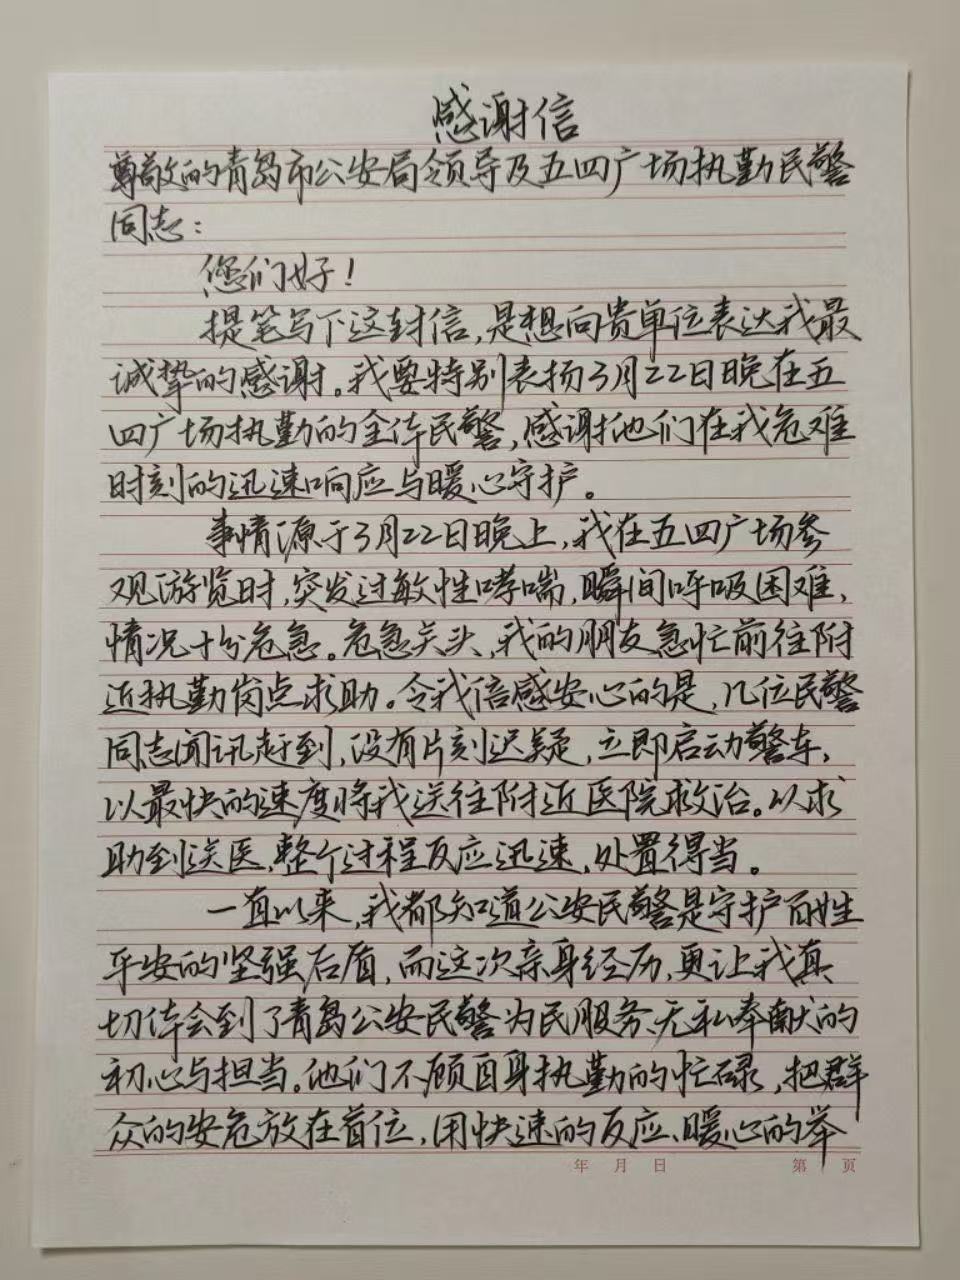 感谢信
尊敬的青岛市公安局领导及五四广场执勤民警
同志：
您们好！
提笔写下这封信，是想向贵单位表达我最
诚挚的感谢。我要特别表扬3月22日晚在五
四广场执勤的全体民警，感谢他们在我危难
时刻的迅速响应与暖心守护。
事情源于3月22日晚上，我在五四广场参
观游览时，突发过敏性哮喘，瞬间呼吸困难，
情况十分危急。危急关头，我的朋友急忙前往附
近执勤岗点求助。令我倍感安心的是，几位民警
同志闻讯赶到，没有片刻迟疑，立即启动警车，
以最快的速度将我送往附近医院救治。从求
助到送医，整个过程反应迅速，处置得当。
一直以来，我都知道公安民警是守护百姓
平安的坚强后盾，而这次亲身经历，更让我真
切体会到了青岛公安民警为民服务、无私奉献的
初心与担当。他们不顾自身执勤的忙碌，把群
众的安危放在首位，用快速的反应、暖心的举
年 月 日 第 页